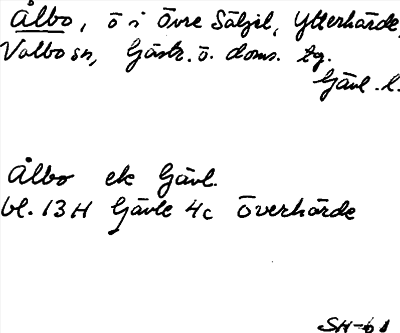 Ålbo, ö i Övre Säljil, Ytterhärde,
Valbo sn, Gästr. ö. doms. tg.
Gävl. l.
Ålbo ek Gävl.
bl. 13H Gävle 4c Överhärde
SH-61